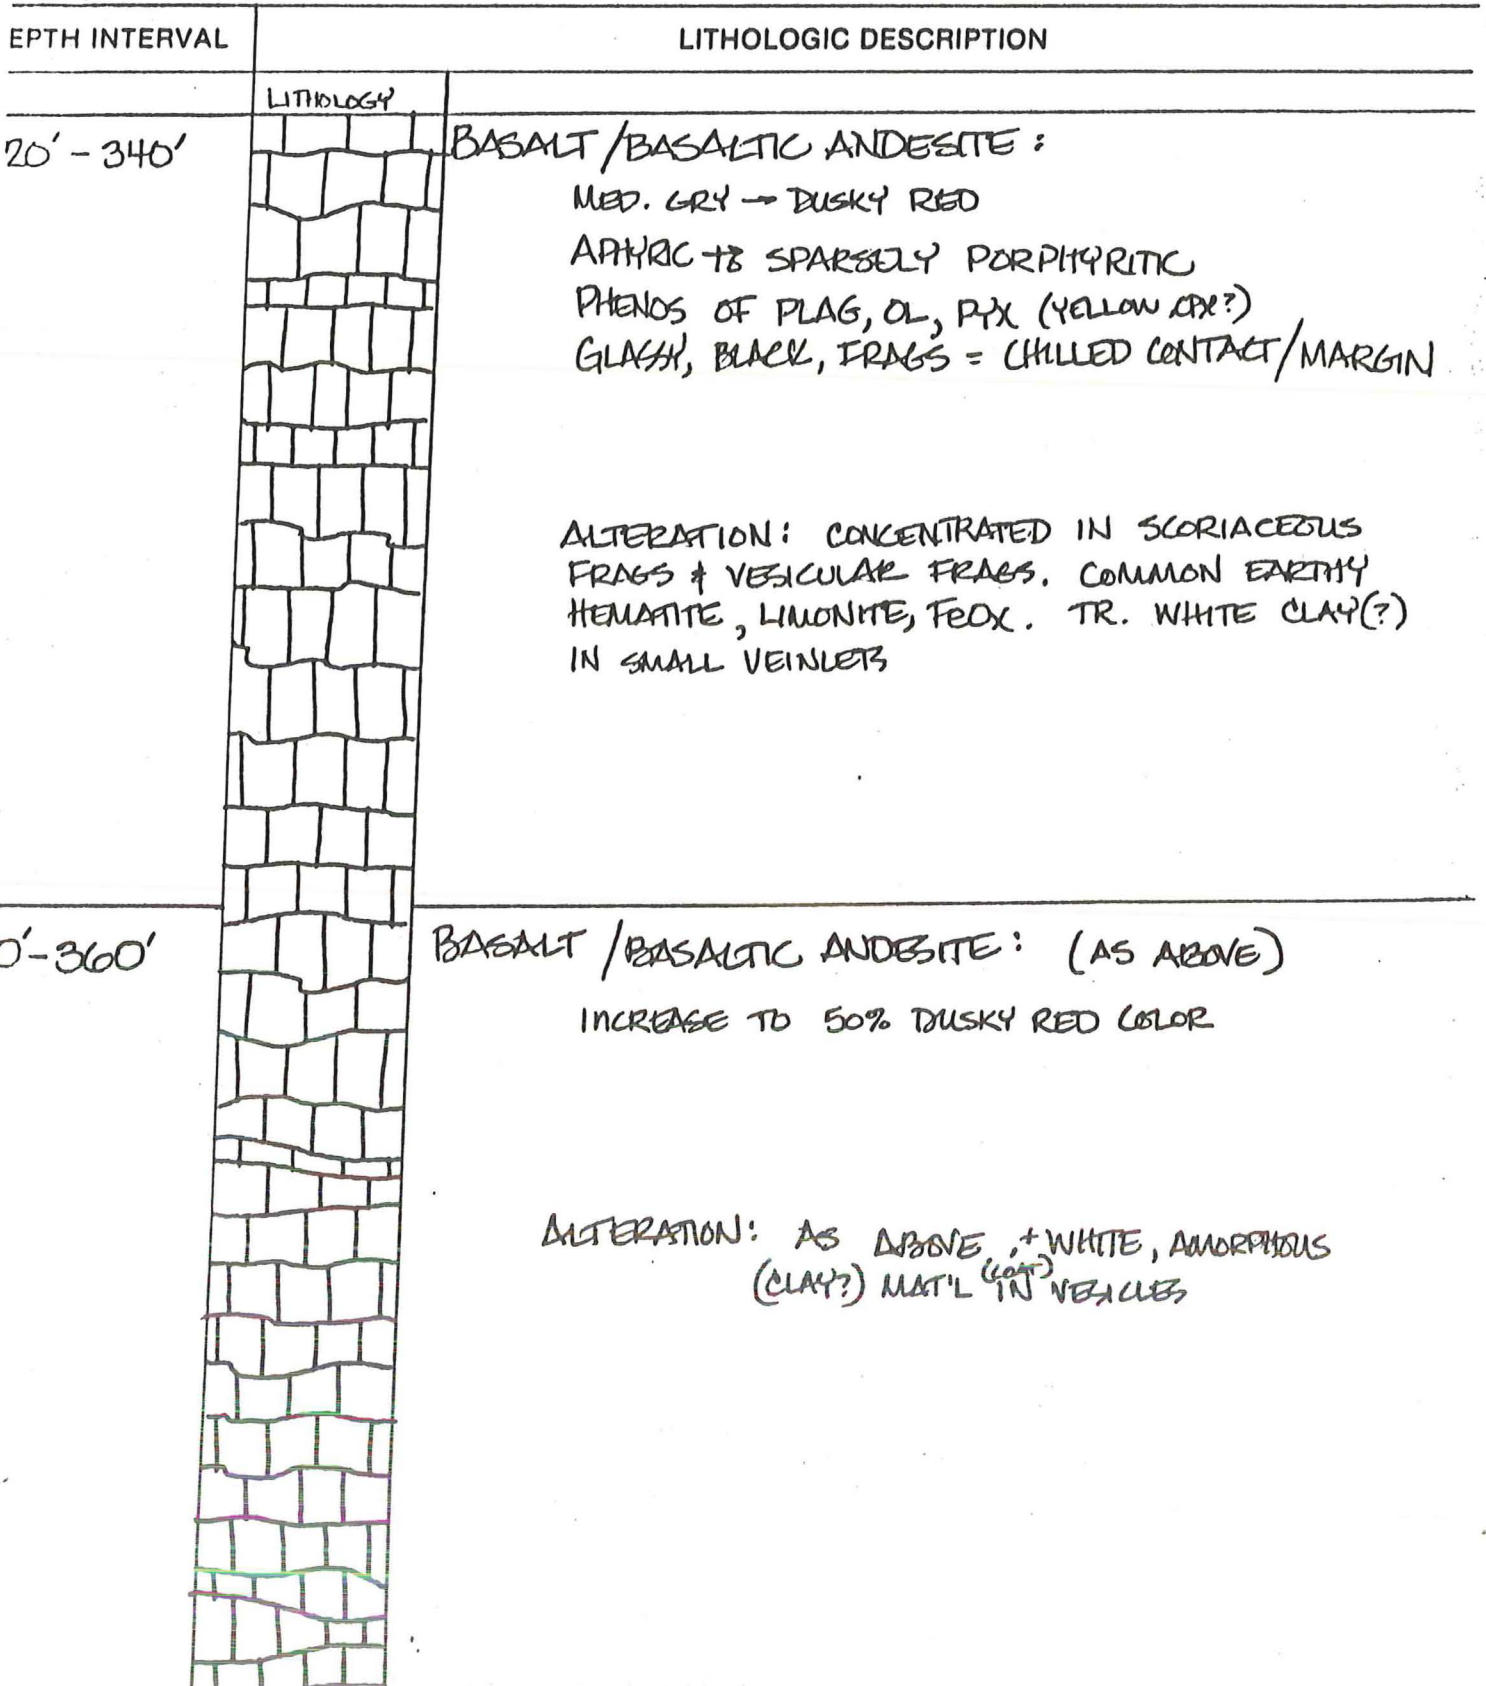 EPTH INTERVAL
LITHOLOGIC DESCRIPTION
LITHOLOGY
20' - 340'
BASALT / BASALTIC ANDESITE :
MED. GRY → DUSKY RED
APHYRIC to SPARSELY PORPHYRITIC
PHENOS OF PLAG, OL, PYX (YELLOW CPX?)
GLASSY, BLACK, FRAGS = CHILLED CONTACT/MARGIN
ALTERATION: CONCENTRATED IN SCORIACEOUS
FRAGS & VESICULAR FRAGS. COMMON EARTHY
HEMATITE, LIMONITE, FeOX. TR. WHITE CLAY(?)
IN SMALL VEINLETS
0'-360'
BASALT / BASALTIC ANDESITE : (AS ABOVE)
INCREASE TO 50% DUSKY RED COLOR
ALTERATION: AS ABOVE, + WHITE, AMORPHOUS
(CLAY?) MAT'L IN VESICLES